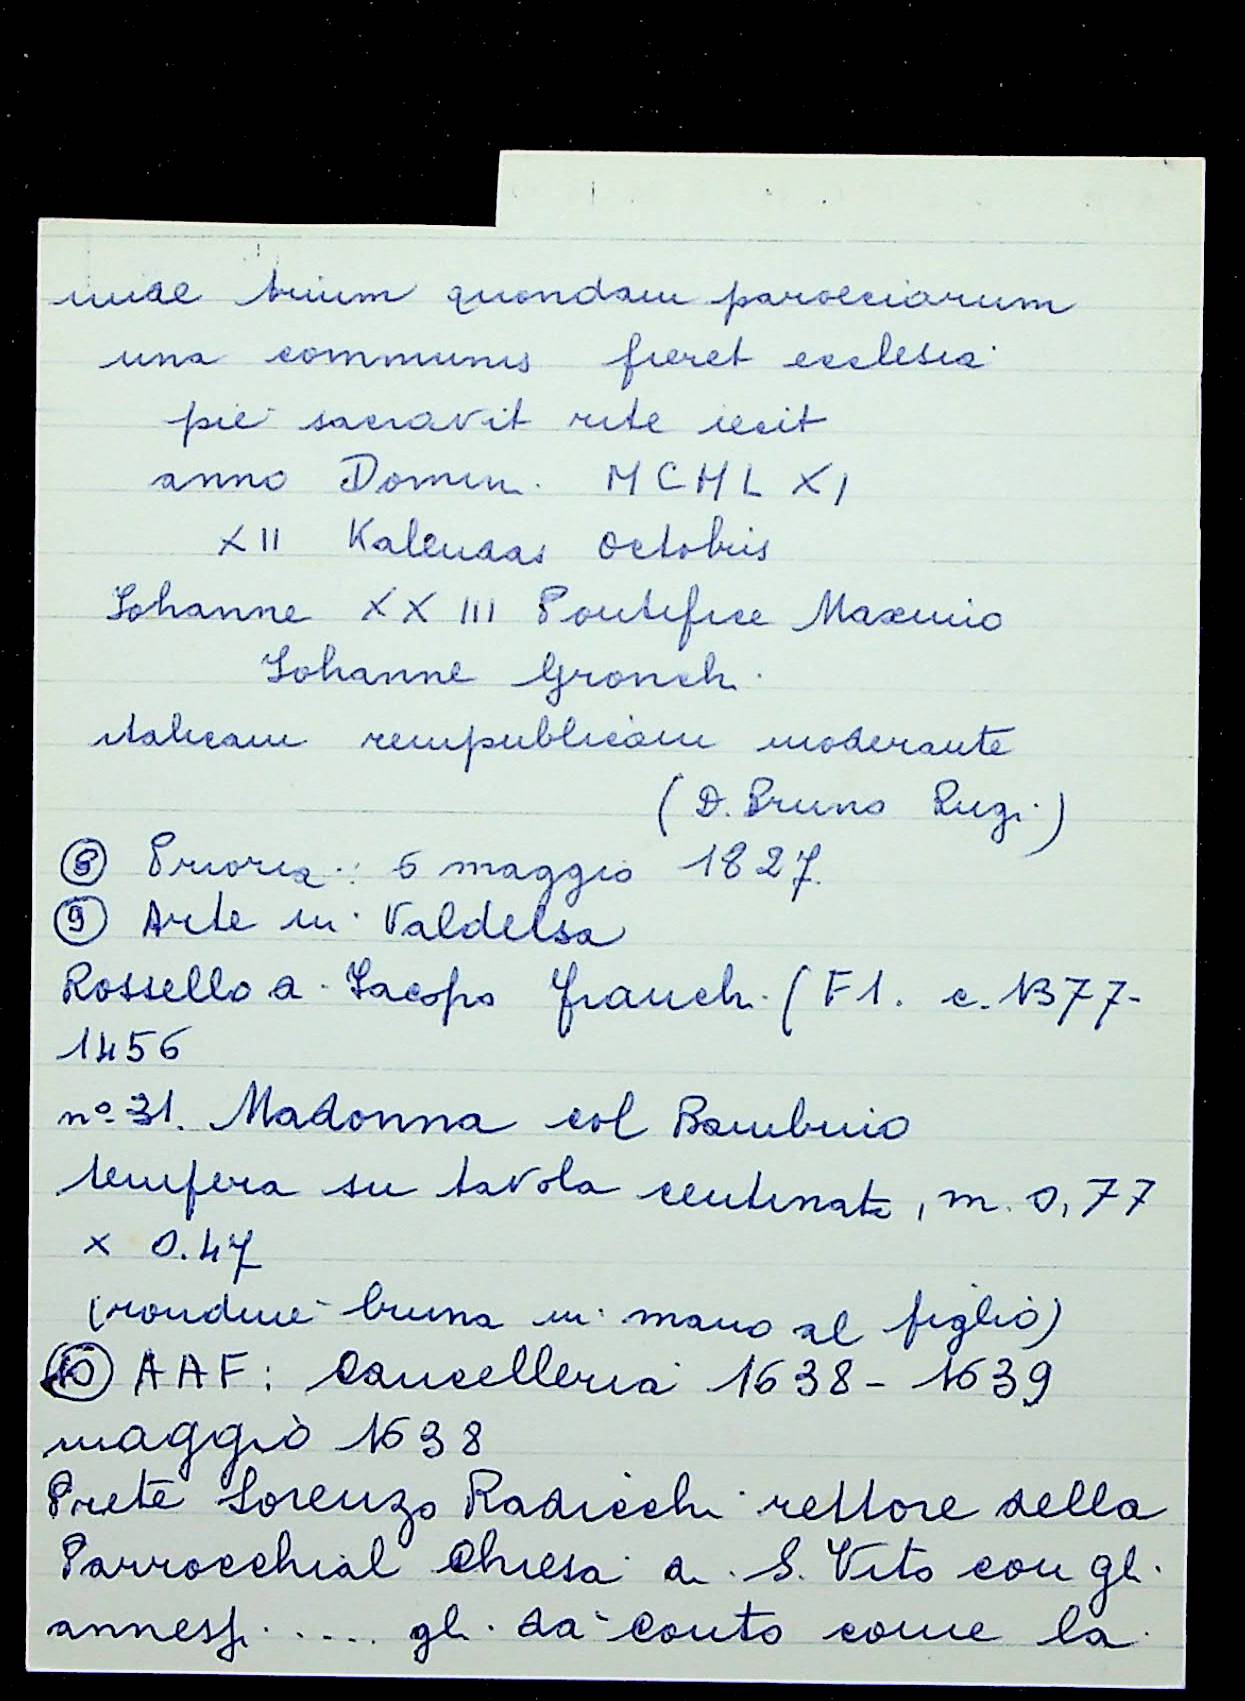 unde trium quondam paroeciarum
una communis fieret ecclesia
pie sacravit rite iecit
anno Domin. MCMLXI
XII Kalendas Octobris
Iohanne XXIII Pontifice Maximo
Iohanne Gronch.
italicam rempublicam moderante
(D. Bruno Lugi)
⑧ Prioria: 6 maggio 1827.
⑨ Arte in Valdelsa
Rossello di Jacopo Franchi (F1. c. 1377-
1456
n° 31. Madonna col Bambino
tempera su tavola centinata, m. 0,77
x 0.47
(rondine bruna in mano al figlio)
⑩ AAF: Cancelleria 1638 - 1639
maggio 1638
Prete Lorenzo Radicchi rettore della
Parrocchial Chiesa di S. Vito con gli
annessi ..... gli dà conto come la